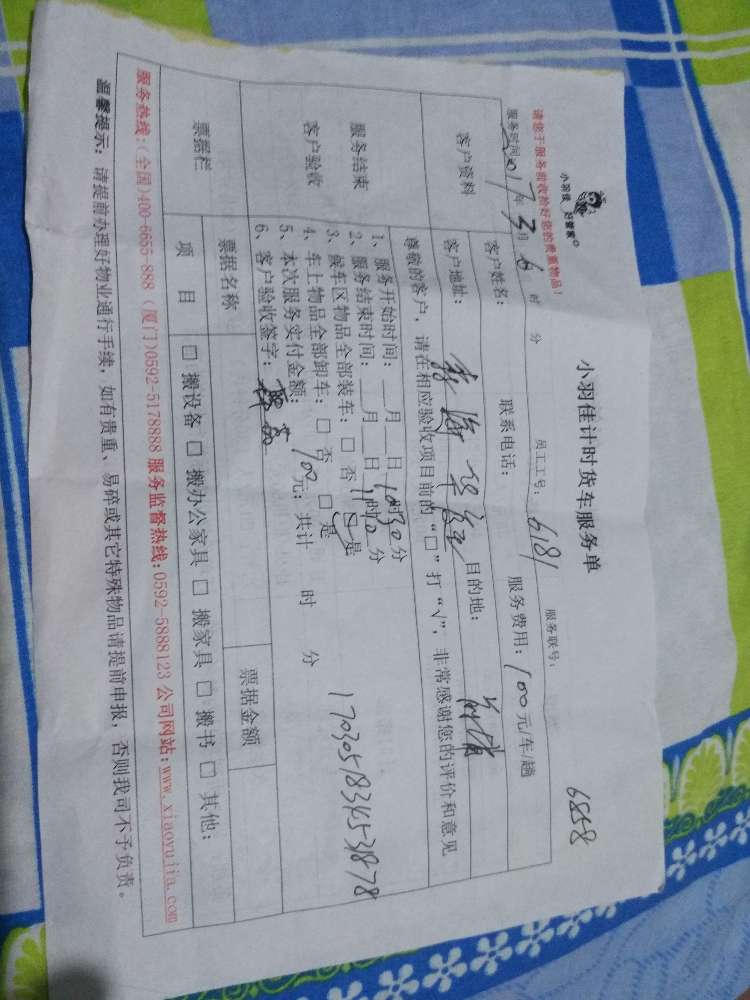 小羽佳 好管家
小羽佳计时货车服务单
6858
请您于服务前收拾好您的贵重物品！
服务时间:2017年3月6日 时 分 员工工号: 6181 服务联号:
客户资料
客户姓名: 联系电话: 服务费用: 100元/车/趟
客户地址: 目的地:
尊敬的客户，请在相应验收项目前的“□”打“√”，非常感谢您的评价和意见
服务结束
客户验收
1、服务开始时间: __月__日10时30分
2、服务结束时间: __月__日11时10分
3、候车区物品全部装车: □ 否 □ 是
4、车上物品全部卸车: □ 否 □ 是
5、本次服务实付金额: 100元; 共计 时 分
6、客户验收签字:
170305183453878
票据栏
票据名称 票据金额
项 目 □ 搬设备 □ 搬办公家具 □ 搬家具 □ 搬书 □ 其他:
服务热线:(全国)400-6655-888 (厦门)0592-5178888 服务监督热线:0592-5888123 公司网站:www.xiaoyujia.com
温馨提示: 请提前办理好物业通行手续，如有贵重、易碎或其它特殊物品请提前申报，否则我司不予负责。